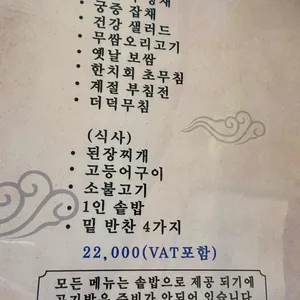 • 궁중 잡채
• 건강 샐러드
• 무쌈오리고기
• 옛날 보쌈
• 한치회 초무침
• 계절 부침전
• 더덕무침
(식사)
• 된장찌개
• 고등어구이
• 소불고기
• 1인 솥밥
• 밑 반찬 4가지
22,000(VAT포함)
모든 메뉴는 솥밥으로 제공 되기에
공기밥은 준비가 안되어 있습니다